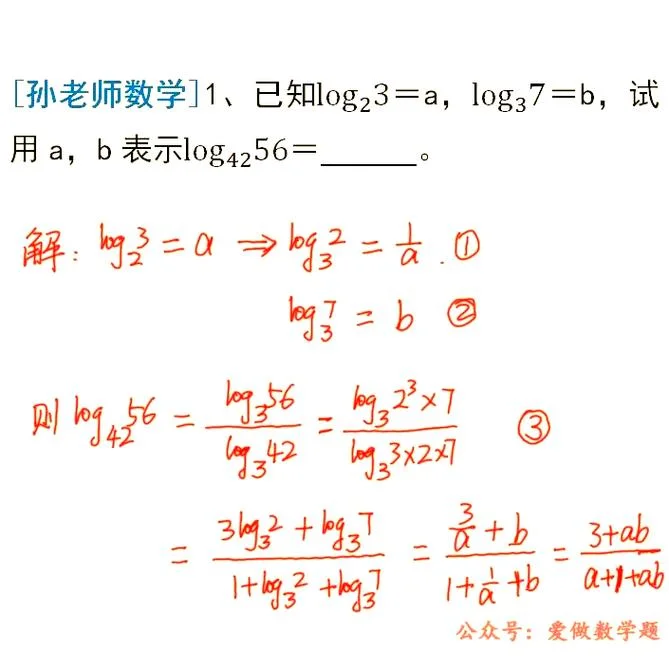 [孙老师数学]1、已知log₂3=a，log₃7=b，试
用 a，b 表示log₄₂56=______。
解: log₂3 = a ⇒ log₃2 = 1/a . ①
log₃7 = b ②
则 log₄₂56 = log₃56/log₃42 = log₃2³×7/log₃3×2×7 ③
= (3log₃2 + log₃7)/(1+log₃2+log₃7) = (3/a + b)/(1+1/a+b) = (3+ab)/(a+1+ab)
公众号：爱做数学题